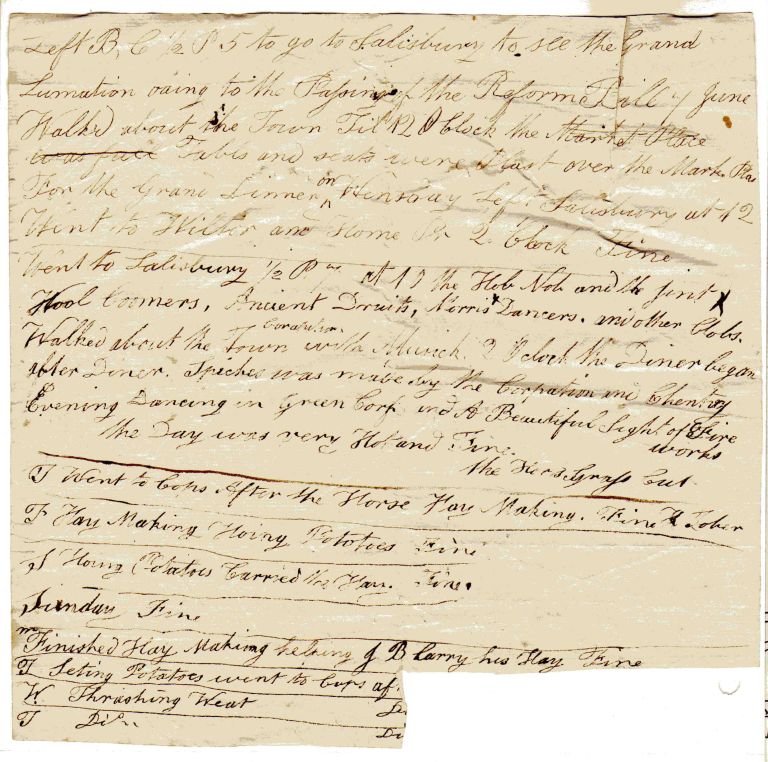 Left B, C ½ P 5 to go to Salisbury to see the Grand
Lumation oaing to the Passing of the Reforme Bill 7 June
Walked about the Town Till 12 O Clock the Market Place
was full Tabls and seats were Plast over the Mark. Plas
For the Grand Dinner on Wensday Left Salisbury at 12
Went to Wilton and Home 2 Clock Fine
Went to Salisbury ½ P at 10 the Hob Nob and the Jint
Wool Coomers, Ancient Druits, Morris Dancers. and other Clobs.
Corpration.
Walked about the Town with Musick. 2 O Clock the Diner began
after Diner. Speches was made by the Corpration and
Evening Dancing in Green Corf. and A Beautiful Sight of Fire
works
the Day was very Hot and Fine.
the Grass Cut
T Went to Cops After the Horse Hay Making. Fine
F Hay Making Hoing Pototoes Fine
S Hoing Potatoes Carried the Hay. Fine.
Sunday Fine
m Finished Hay Making helping G B Carry his Hay Fine
T Seting Potatoes went to Cops af
W. Thrashing Weat
T Do